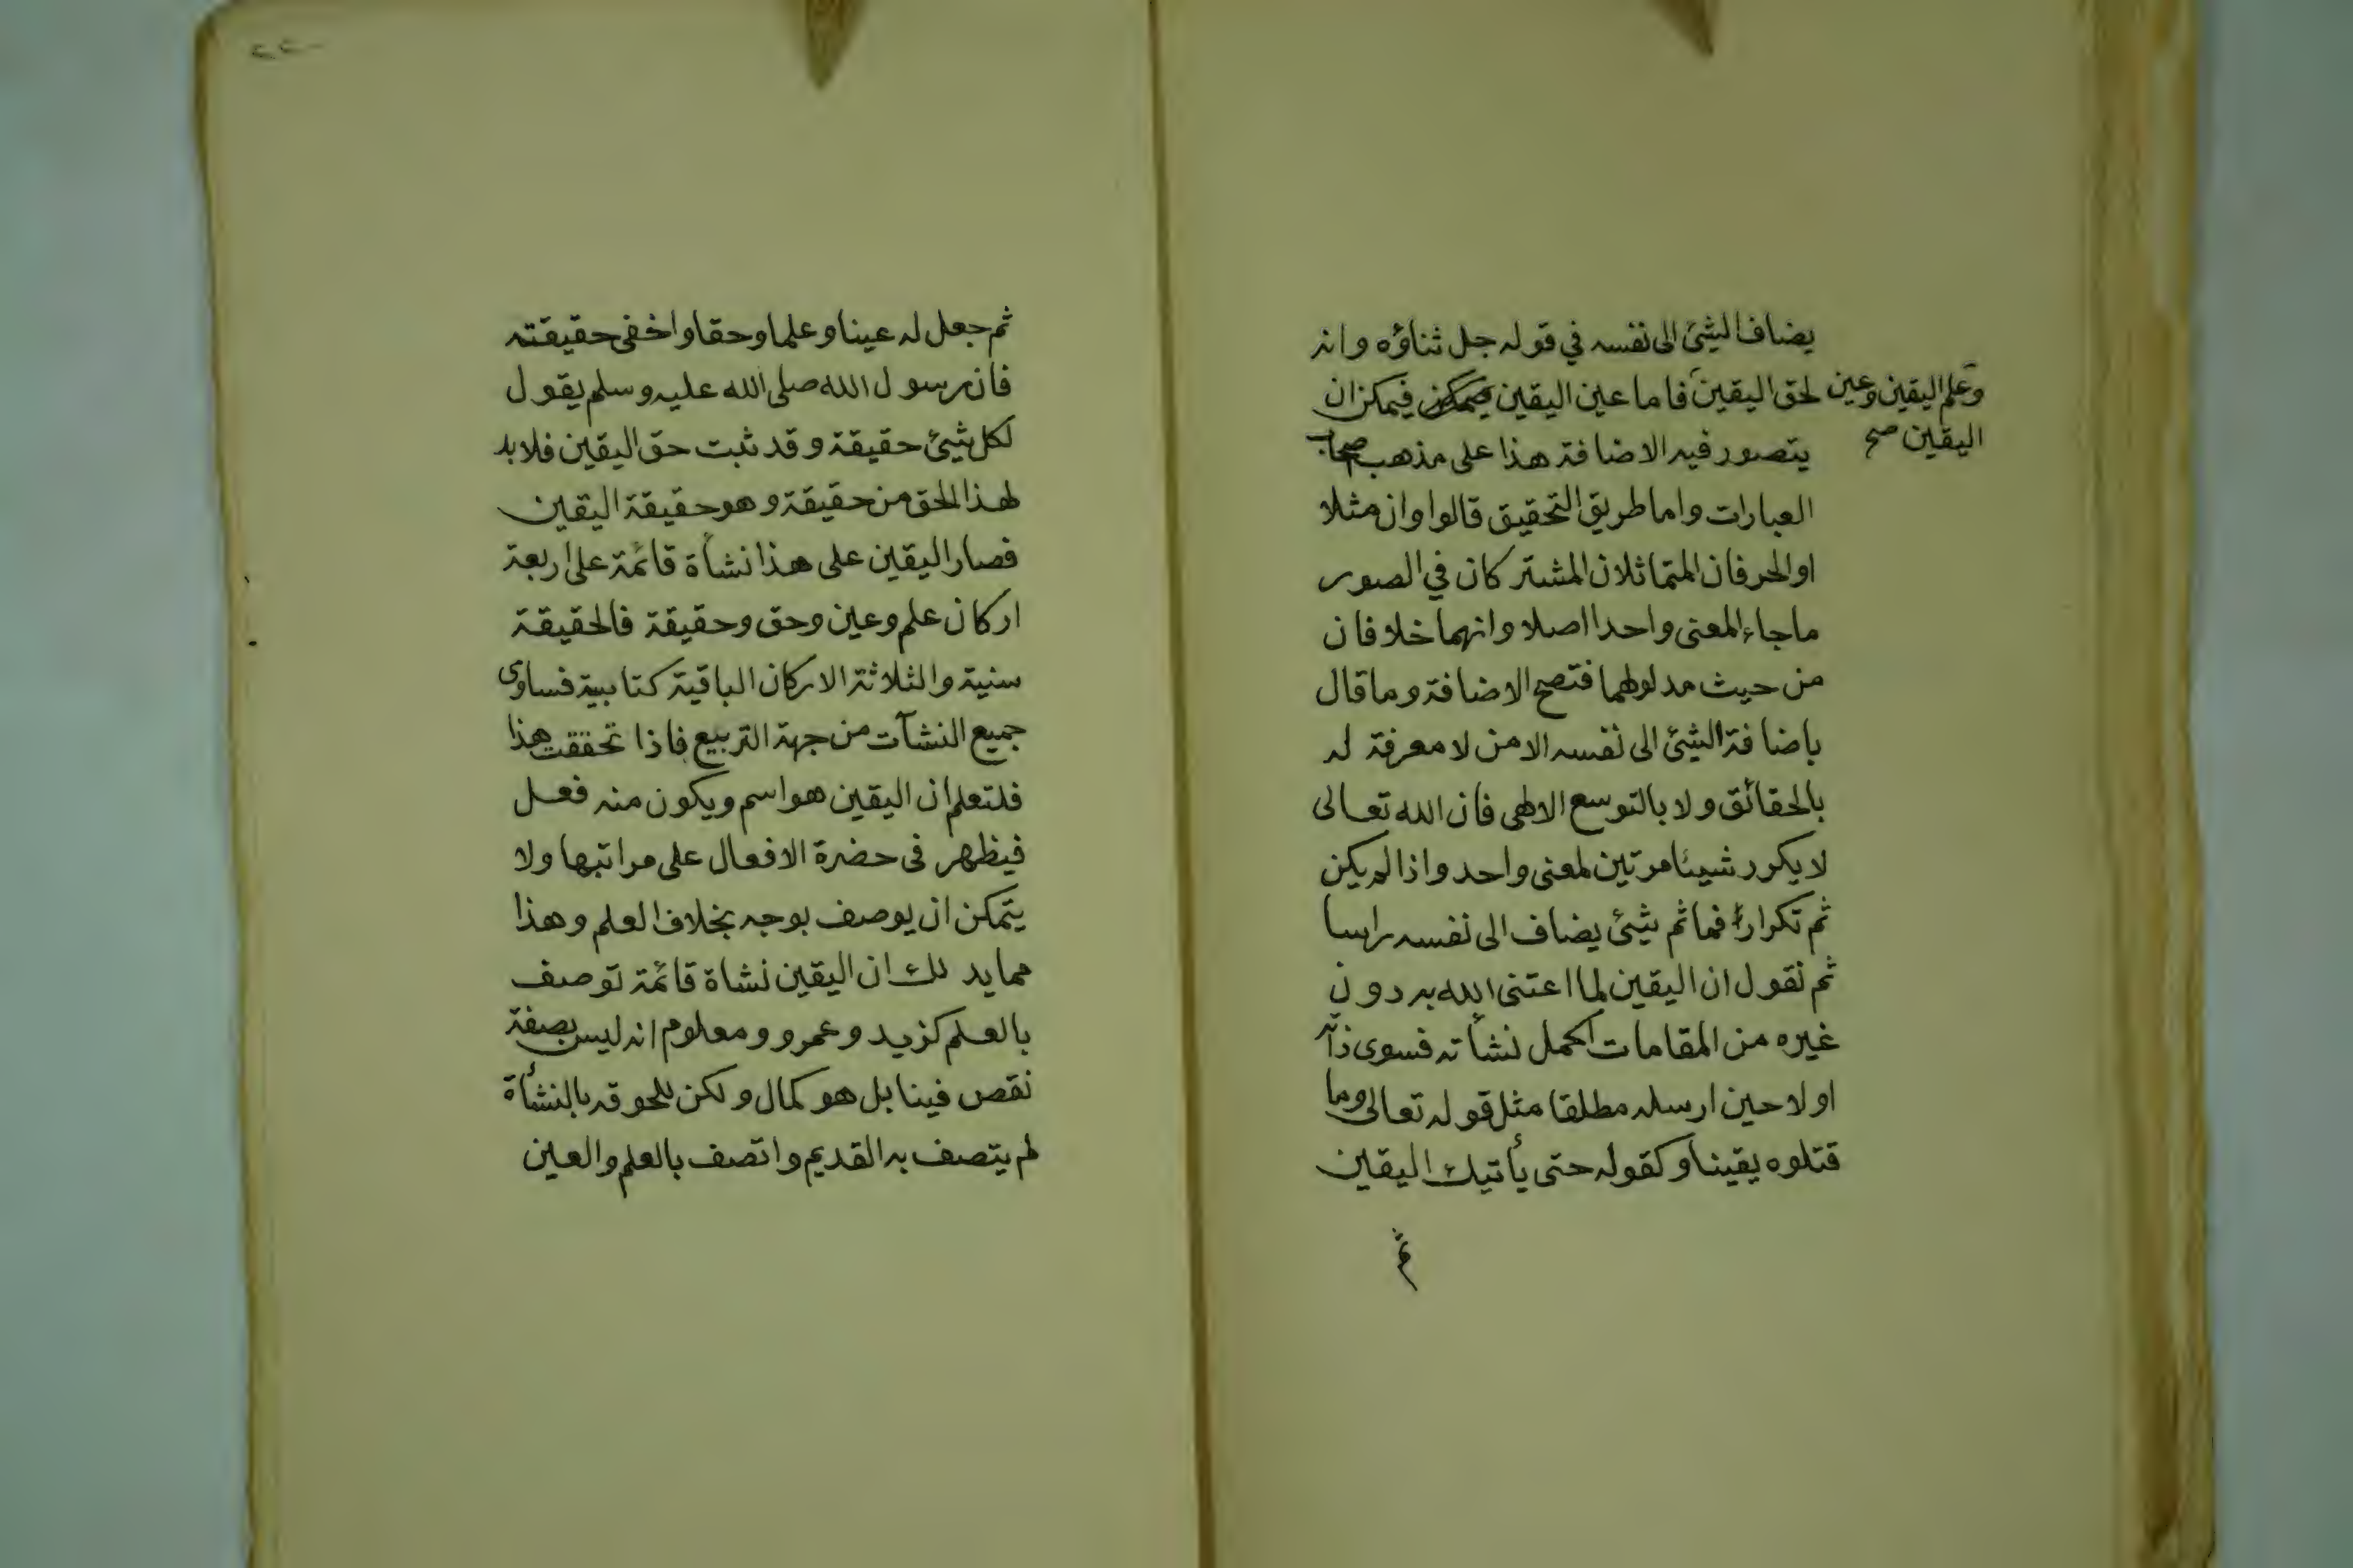 يضاف الشيئ الى نفسه في قوله جل ثناؤه وانه
لحق اليقين فاما عين اليقين فيمكن ان
وعلم اليقين وعين
اليقين صح
يتصور فيه الاضافة هذا على مذهب اصحاب
العبارات واما طريق التحقيق قالوا وان مثلا
او الحرفان المتماثلان المشتركان في الصور
ما جاء المعنى واحدا اصلا وانهما خلافان
من حيث مدلولهما فتصح الاضافة وما قال
باضافة الشيئ الى نفسه الا من لا معرفة له
بالحقائق ولا بالتوسع الالهى فان الله تعالى
لا يكرر شيئا مرتين لمعنى واحد واذا لم يكن
ثم تكرار فما ثم شيئ يضاف الى نفسه راسا
ثم نقول ان اليقين لما اعتنى الله به دون
غيره من المقامات اكمل نشأته فسوى ذاته
اولا حين ارسله مطلقا مثل قوله تعالى وما
قتلوه يقينا وكقوله حتى يأتيك اليقين
ثم
٢٢
ثم جعل له عينا وعلما وحقا واخفى حقيقته
فان رسول الله صلى الله عليه وسلم يقول
لكل شيئ حقيقة وقد ثبت حق اليقين فلا بد
لهذا الحق من حقيقة وهو حقيقة اليقين
فصار اليقين على هذا نشأة قائمة على اربعة
اركان علم وعين وحق وحقيقة فالحقيقة
سنية والثلاثة الاركان الباقية كتابية فساوى
جميع النشآت من جهة التربيع فاذا تحققت هذا
فلتعلم ان اليقين هو اسم ويكون منه فعل
فيظهر فى حضرة الافعال على مراتبها ولا
يتمكن ان يوصف بوجه بخلاف العلم وهذا
مما يد لك ان اليقين نشاة قائمة توصف
بالعلم كزيد وعمرو ومعلوم انه ليس بصفة
نقص فينا بل هو كمال ولكن للحوقه بالنشأة
لم يتصف به القديم واتصف بالعلم والعين